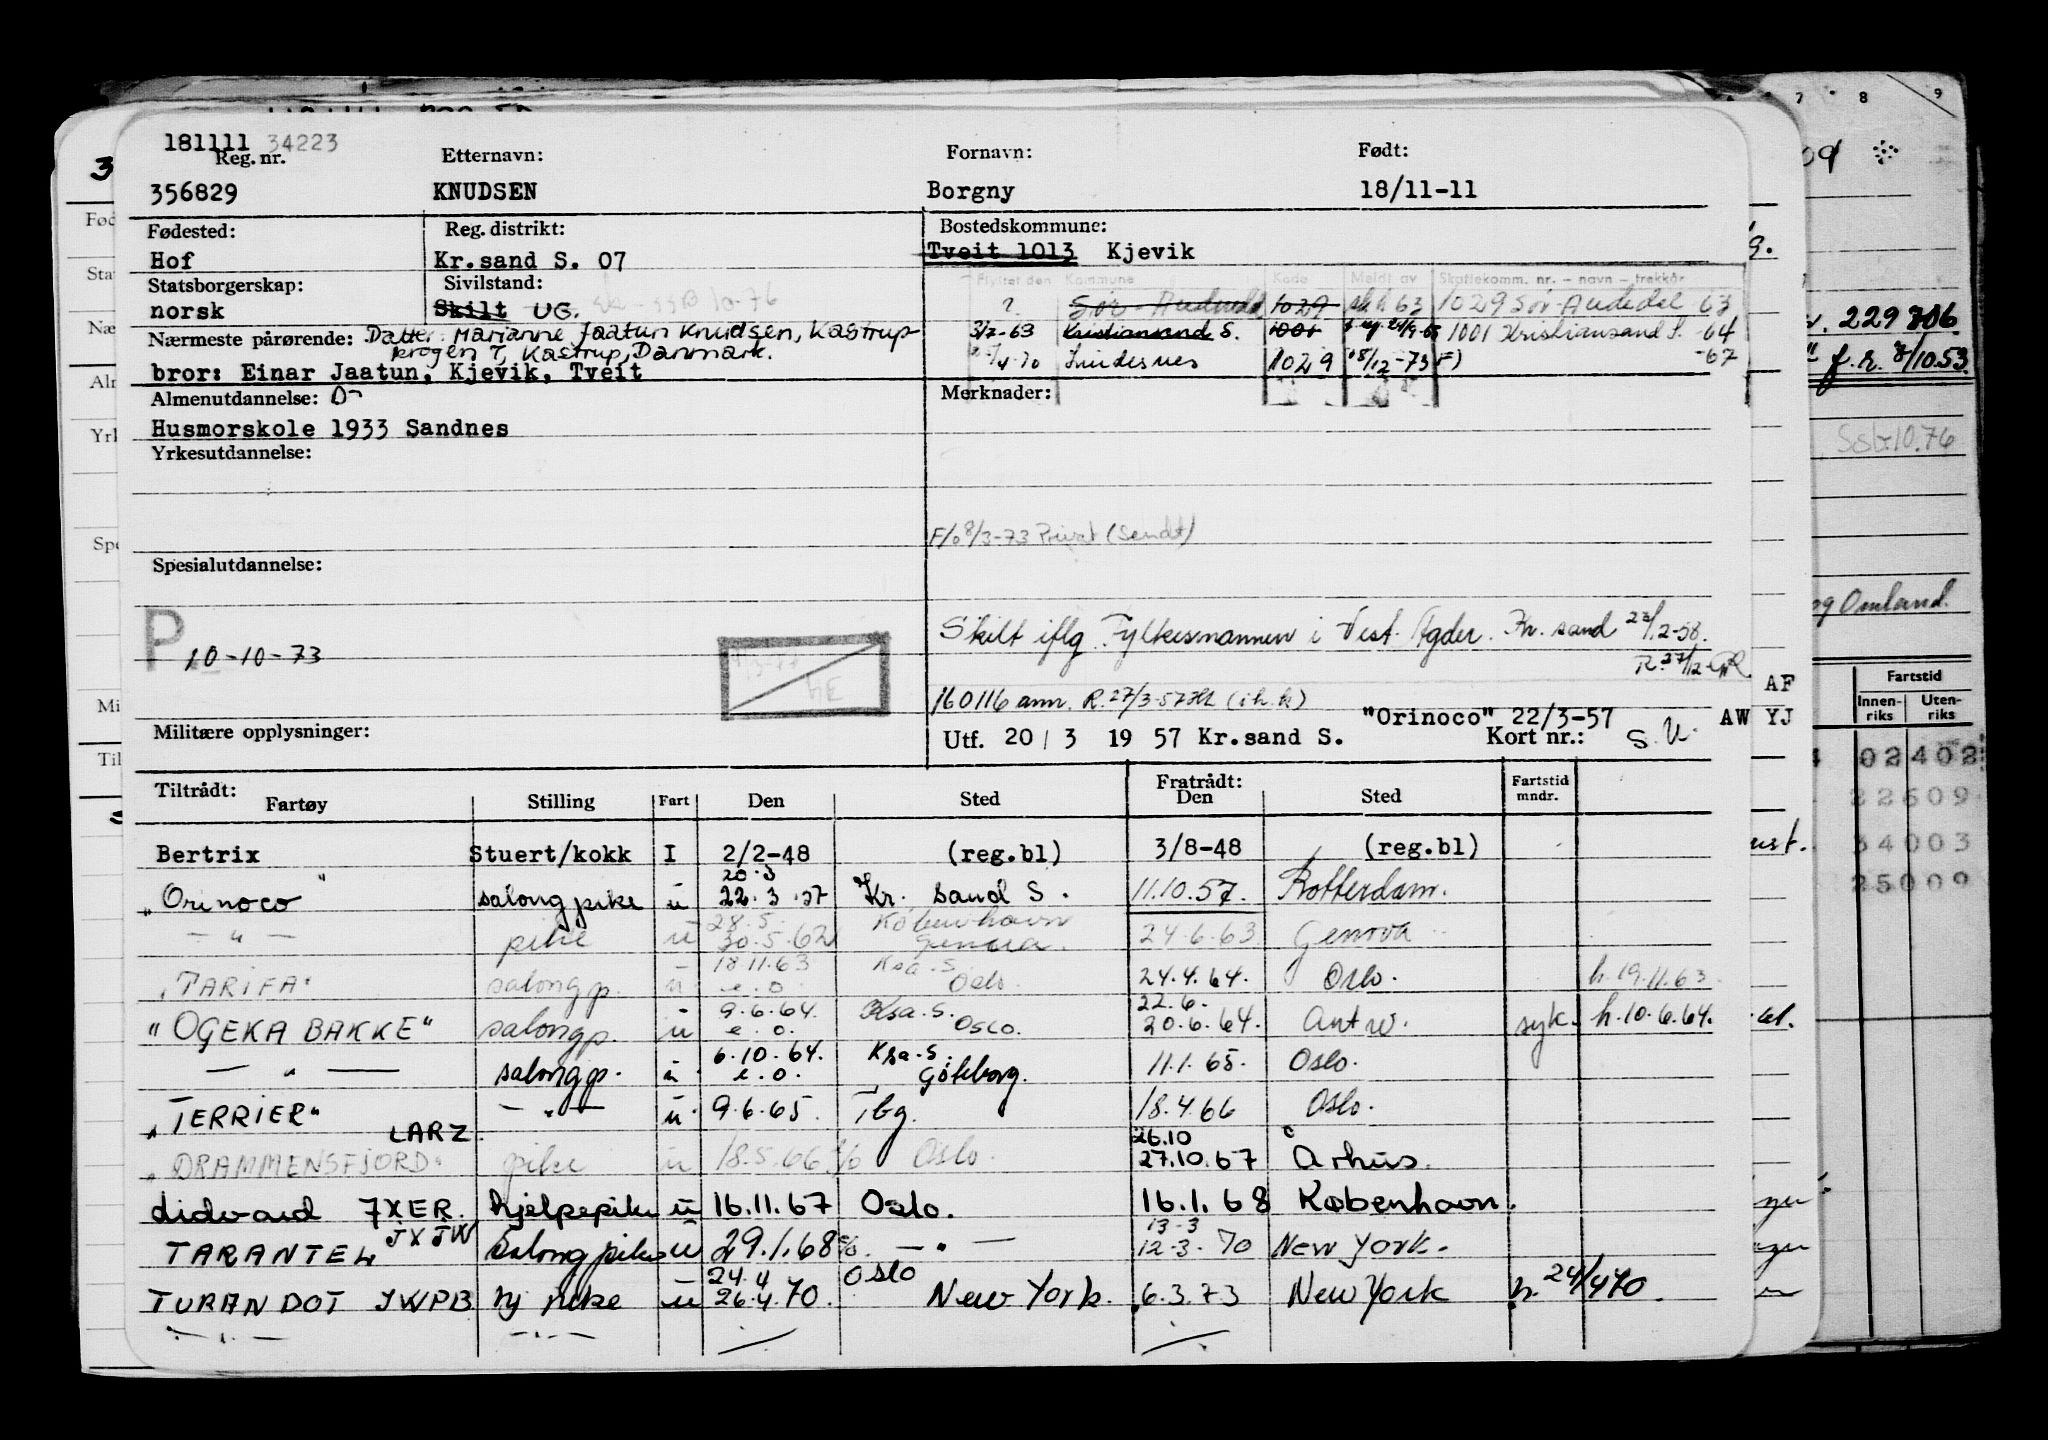 181111 34223
Reg. nr. Etternavn: Fornavn: Født:
356829 KNUDSEN Borgny 18/11-11
Fødested: Reg. distrikt: Bostedskommune:
Hof Kr.sand S. 07 Tveit 1013 Kjevik
Statsborgerskap: Sivilstand: Flyttet den Kommune Kode Meldt av Skattekomm. nr. – navn – trekkår
norsk Skilt UG. 10-76 ? Sør-Audnedal 1029 63 1029 Sør-Audedal 63
Nærmeste pårørende: Datter: Marianne Jaatun Knudsen, Kastrup- 3/7-63 Kristiansand S. 1001 1001 Kristiansand S. -64
krogen 7, Kastrup, Danmark. 4-70 Lindesnes 1029 18/12-73 F) -67
bror: Einar Jaatun, Kjevik, Tveit
Almenutdannelse: Merknader:
Husmorskole 1933 Sandnes
Yrkesutdannelse:
F/o 8/3-73 Privat (Sendt)
Spesialutdannelse:
Skilt iflg. Fylkesmannen i Vest-Agder. Kr. sand 23/12-58.
P 10-10-73
R. 27/12-
160116 ann. R. 27/3-57 (i.h.k)
AF
"Orinoco" 22/3-57 AW YJ
Militære opplysninger: Utf. 20 / 3 19 57 Kr.sand S. Kort nr.: S.U.
Tiltrådt: Fratrådt: Fartstid
Fartøy Stilling Fart Den Sted Den Sted mndr.
Bertrix Stuert/kokk I 2/2-48 (reg.bl) 3/8-48 (reg.bl)
20.3
"Orinoco" salongpike u 22.3.57 Kr. sand S. 11.10.57. Rotterdam.
28.5. København
— " — pike u 30.5.62 Genova. 24.6.63. Genova
18.11.63 Ksa. S.
"TARIFA" salongp. u e.o. Oslo. 24.4.64. Oslo. h. 19.11.63.
9.6.64. Ksa. S. 22.6.
"OGEKA BAKKE" salongp. u e.o. Oslo. 20.6.64. Antw. syk. h. 10.6.64.
6.10.64. Ksa. S.
— " — salongp. u e.o. Göteborg. 11.1.65. Oslo.
"TERRIER" — " — u 9.6.65. Tbg. 18.4.66 Oslo.
LARZ 26.10
"DRAMMENSFJORD" pike u 18.5.66 Oslo. 27.10.67 Århus.
Lidvard JXER. hjelpepike u 16.11.67 Oslo. 16.1.68 København.
JXJW 13-3
TARANTEL salongpike u 29.1.68 — " — 12-3-70 New York.
24.4 Oslo
TURANDOT JWPB pike u 26.4.70. New York. 6.3.73 New York h. 24/4 70.
— " — — " —
7 8 9
229306
f.r. 8/10.53.
10.76
Omland.
Fartstid
Innen-riks Uten-riks
02402
22609
34003
25009